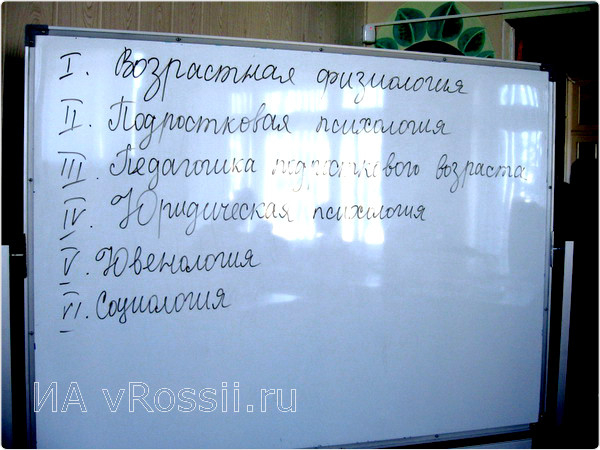 I. Возрастная физиология
II. Подростковая психология
III. Педагогика подросткового возраста.
IV. Юридическая психология
V. Ювенология
VI. Социология
ИА vRossii.ru